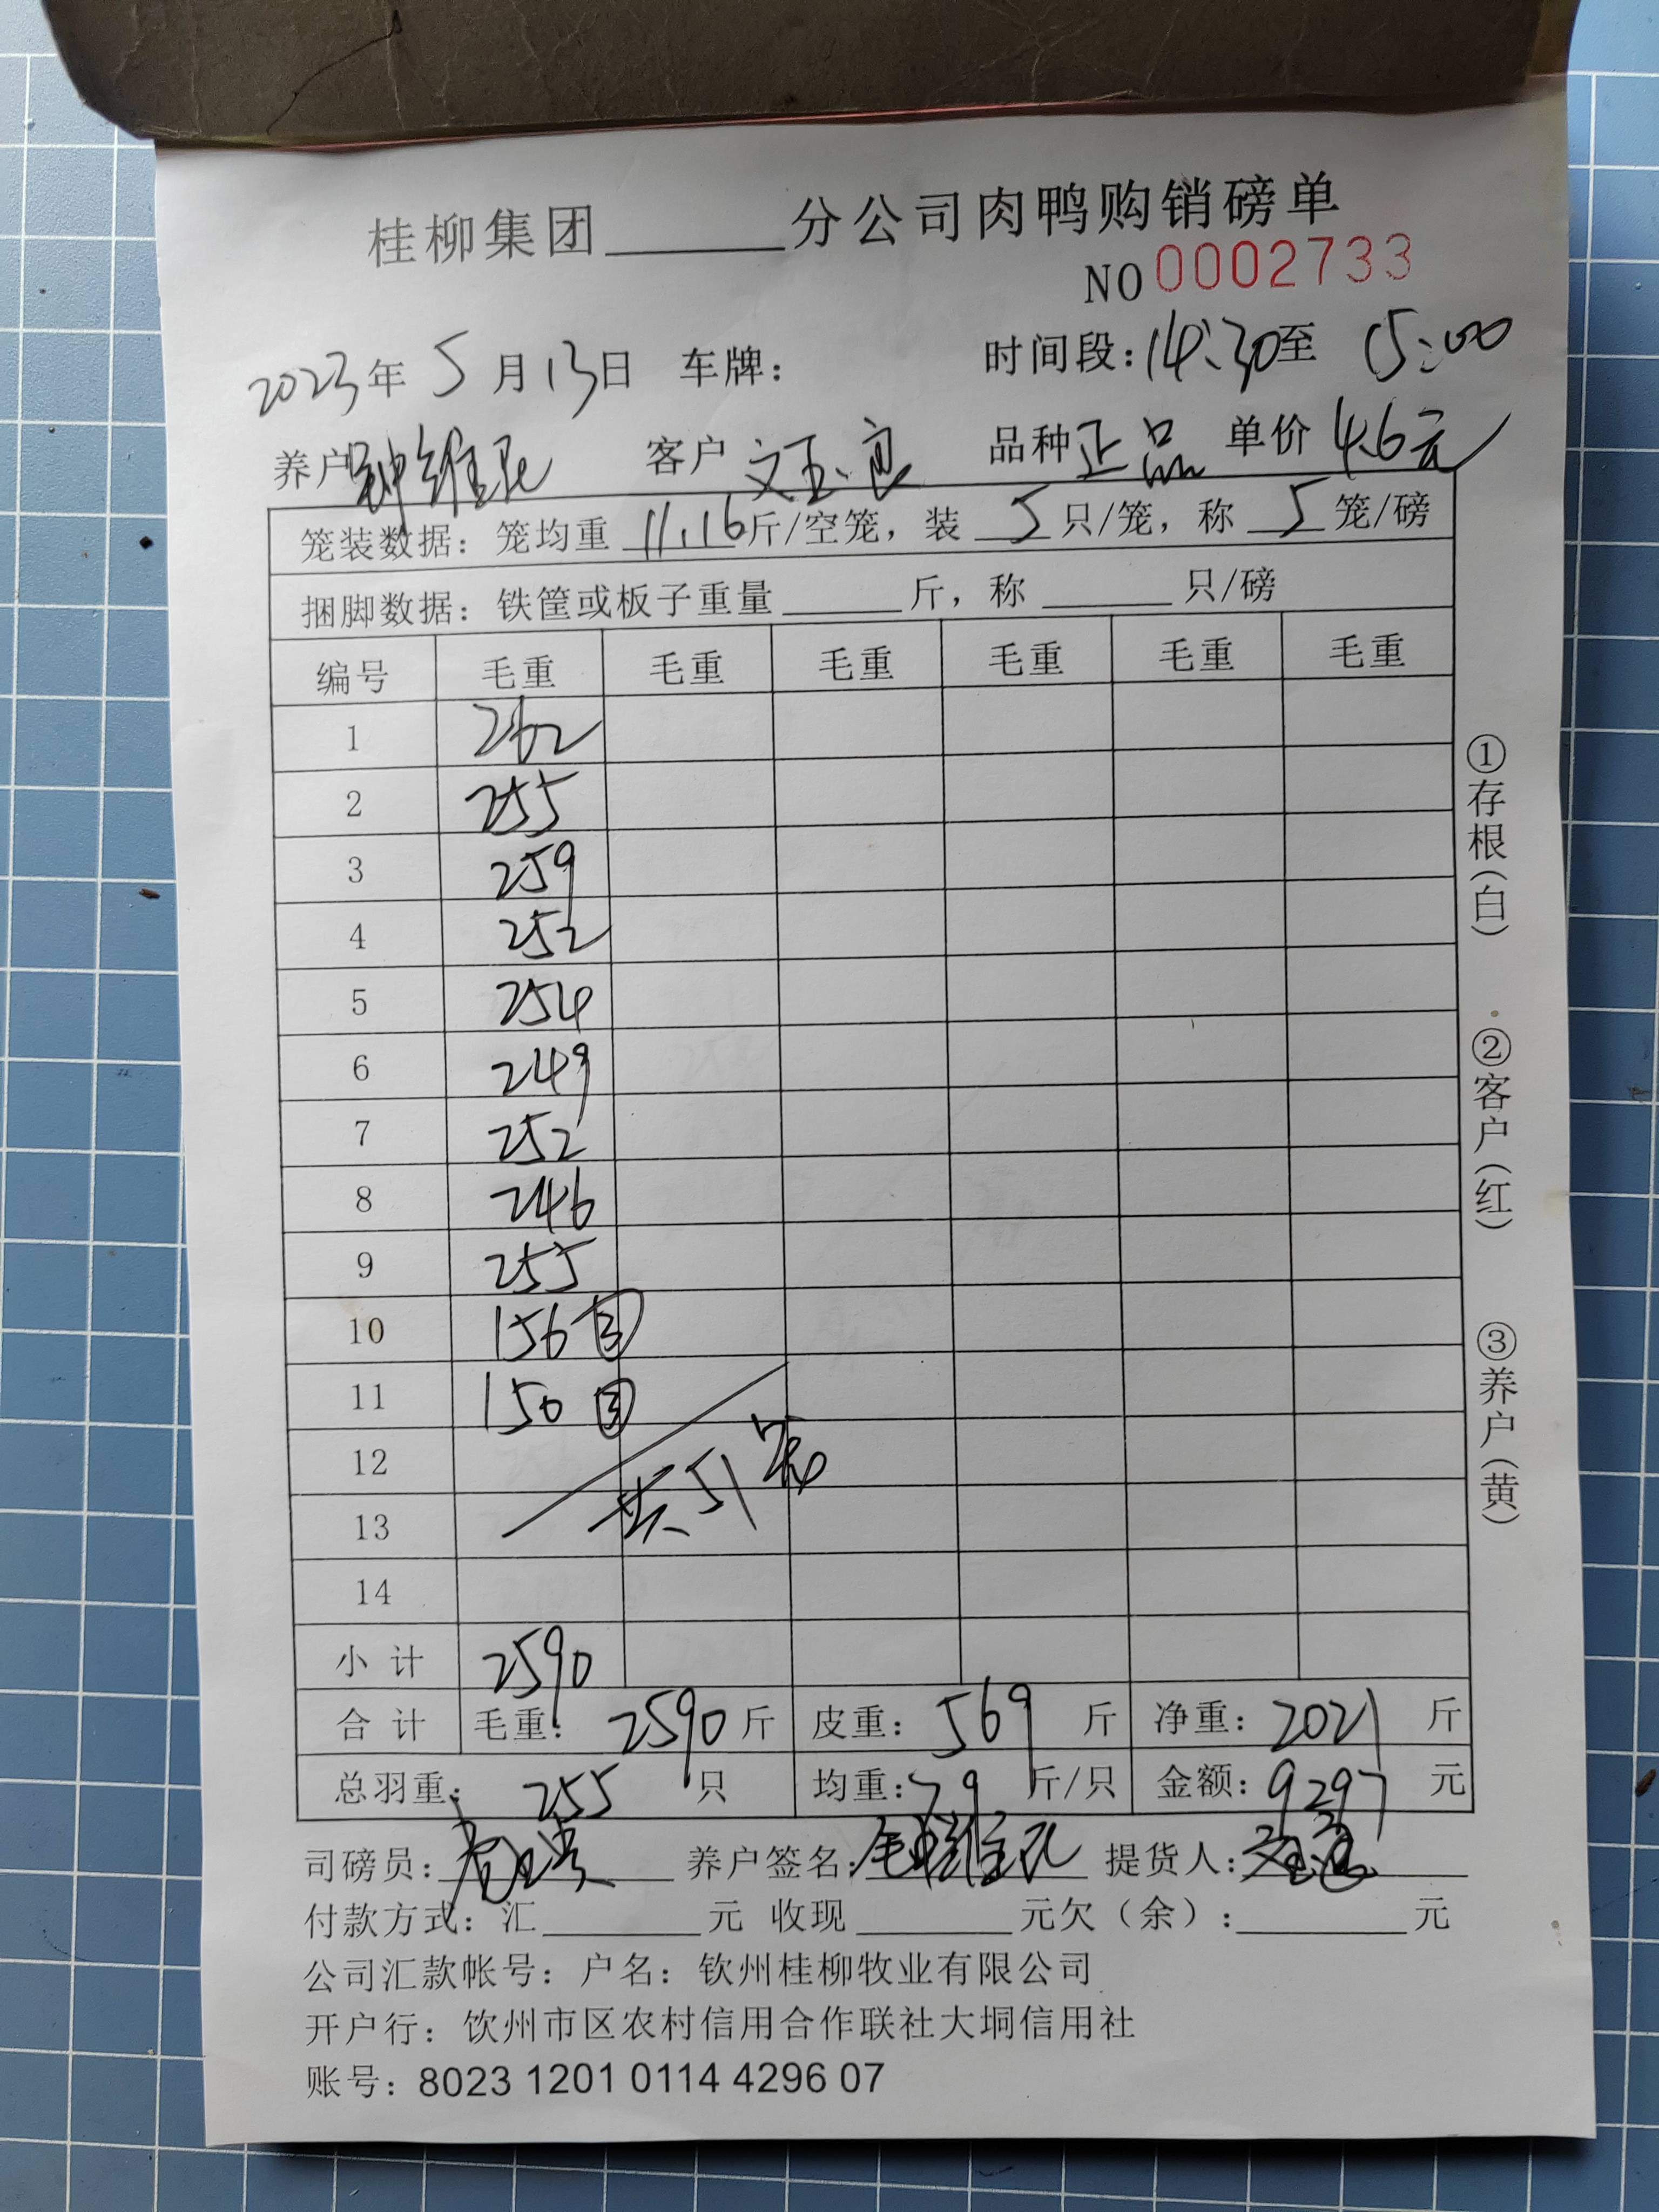 桂柳集团______分公司肉鸭购销磅单
NO 0002733
2023年 5月13日 车牌： 时间段：14:30至 15:00
养户 钟维 客户 文玉良 品种 正品 单价 4.6元
笼装数据：笼均重 11.16斤/空笼，装 5 只/笼，称 5 笼/磅
捆脚数据：铁筐或板子重量______斤，称______只/磅
编号 毛重 毛重 毛重 毛重 毛重 毛重
1 262
2 255
3 259
4 252
5 254
6 249
7 252
8 246
9 255
10 156 ③
11 150 ③
12
共51笼
13
14
小计 2590
合计 毛重：2590斤 皮重：569斤 净重：2021斤
总羽重：255只 均重：7.9斤/只 金额：9297元
司磅员： 养户签名：钟维 提货人：文玉良
付款方式：汇______元 收现______元欠（余）：______元
公司汇款帐号：户名：钦州桂柳牧业有限公司
开户行：钦州市区农村信用合作联社大垌信用社
账号：8023 1201 0114 4296 07
①存根（白）
②客户（红）
③养户（黄）